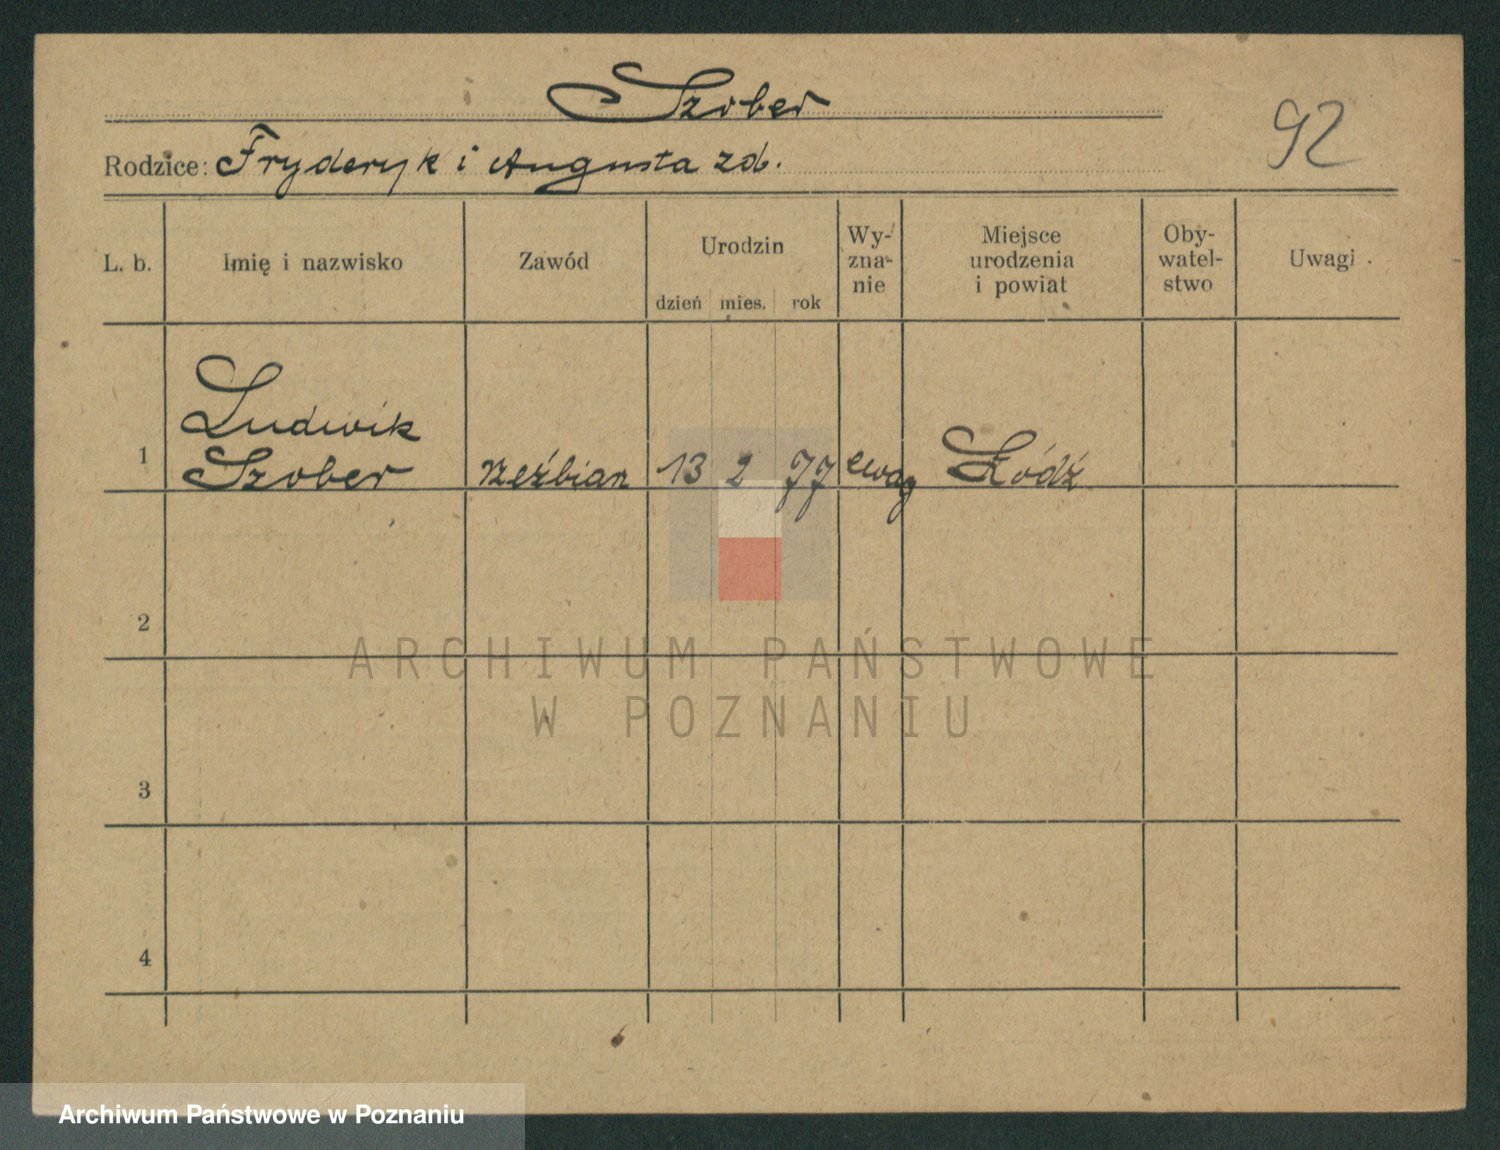 Szober
92
Rodzice: Fryderyk i Augusta zd.
L. b.
Imię i nazwisko
Zawód
Urodzin
dzień mies. rok
Wy-
zna-
nie
Miejsce
urodzenia
i powiat
Oby-
watel-
stwo
Uwagi
1
Ludwik
Szober
rzeźbiar
13 2 77
ewag
Łódź
2
3
4
ARCHIWUM PAŃSTWOWE
W POZNANIU
Archiwum Państwowe w Poznaniu